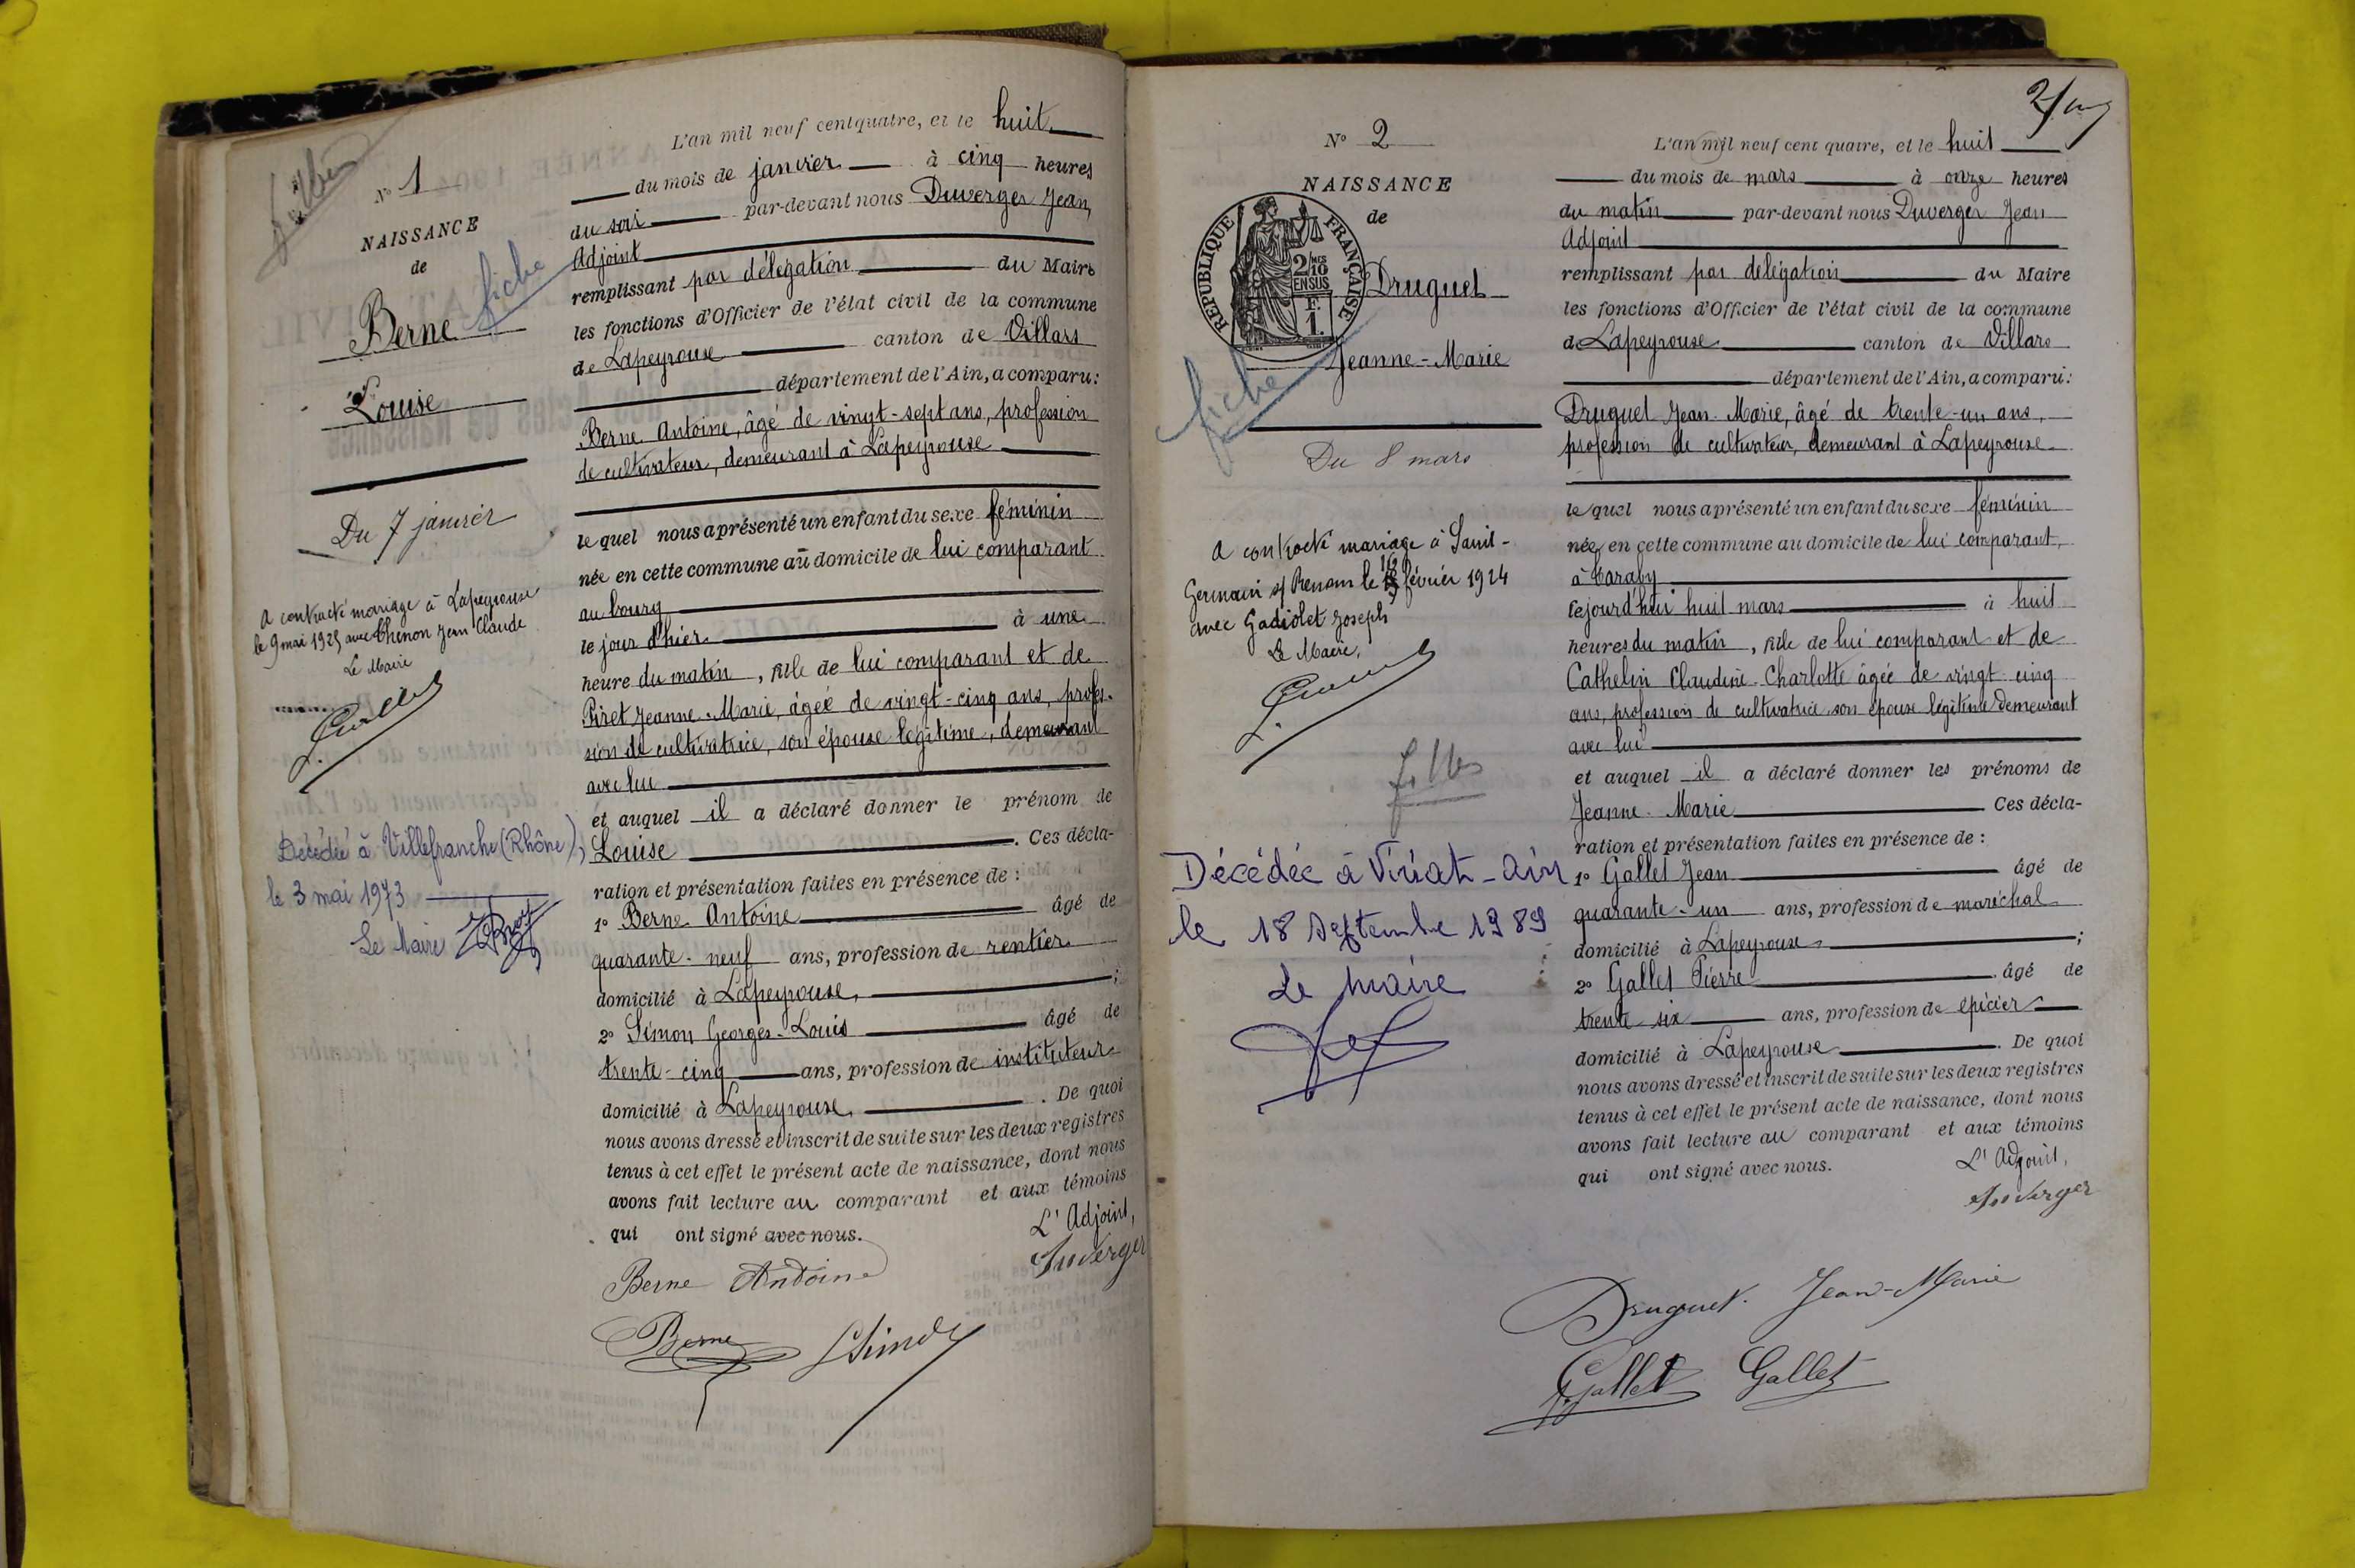 N° 1
NAISSANCE
de
Berne
fiche
Louise
Du 7 janvier
A contracté mariage à Lapeyrouse
le 9 mai 1925 avec Thenon Jean Claude
Le Maire
Décédée à Villefranche (Rhône),
le 3 mai 1973
Le Maire
L'an mil neuf cent quatre, et le huit
du mois de janvier à cinq heures
du soir par-devant nous Duverger Jean,
Adjoint
remplissant par délégation du Maire
les fonctions d'Officier de l'état civil de la commune
de Lapeyrouse canton de Villars
département de l'Ain, a comparu:
Berne Antoine, âgé de vingt-sept ans, profession
de cultivateur, demeurant à Lapeyrouse
le quel nous a présenté un enfant du sexe féminin
née en cette commune au domicile de lui comparant
au bourg
le jour d'hier à une
heure du matin, fille de lui comparant et de
Piret Jeanne-Marie, âgée de vingt-cinq ans, profes-
sion de cultivatrice, son épouse légitime, demeurant
avec lui
et auquel il a déclaré donner le prénom de
Louise. Ces décla-
ration et présentation faites en présence de :
1° Berne Antoine âgé de
quarante-neuf ans, profession de rentier
domicilié à Lapeyrouse, ;
2° Simon Georges-Louis âgé de
trente-cinq ans, profession de instituteur
domicilié à Lapeyrouse, . De quoi
nous avons dressé et inscrit de suite sur les deux registres
tenus à cet effet le présent acte de naissance, dont nous
avons fait lecture au comparant et aux témoins
qui ont signé avec nous.
L'Adjoint,
Duverger
Berne Antoine
Berne Simon
2
N° 2
NAISSANCE
de
REPUBLIQUE FRANÇAISE
2/10 EN SUS
F.
1.
Druguet
Jeanne-Marie
fiche
Du 8 mars
A contracté mariage à Saint-
Germain s/ Renom le 16 février 1924
avec Gadiolet Joseph
Le Maire,
Décédée à Viriat - Ain
le 18 Septembre 1989
Le Maire
L'an mil neuf cent quatre, et le huit
du mois de mars à onze heures
du matin par-devant nous Duverger Jean
Adjoint
remplissant par délégation du Maire
les fonctions d'Officier de l'état civil de la commune
de Lapeyrouse canton de Villars
département de l'Ain, a comparu:
Druguet Jean-Marie, âgé de trente-un ans,
profession de cultivateur, demeurant à Lapeyrouse
le quel nous a présenté un enfant du sexe féminin
née en cette commune au domicile de lui comparant,
à
ce jourd'hui huit mars à huit
heures du matin, fille de lui comparant et de
Cathelin Claudine-Charlotte âgée de vingt cinq
ans, profession de cultivatrice son épouse légitime demeurant
avec lui
et auquel il a déclaré donner les prénoms de
Jeanne-Marie Ces décla-
ration et présentation faites en présence de :
1° Gallet Jean âgé de
quarante-un ans, profession de maréchal
domicilié à Lapeyrouse ;
2° Gallet Pierre âgé de
trente six ans, profession de épicier
domicilié à Lapeyrouse . De quoi
nous avons dressé et inscrit de suite sur les deux registres
tenus à cet effet le présent acte de naissance, dont nous
avons fait lecture au comparant et aux témoins
qui ont signé avec nous.
L'Adjoint,
Duverger
Druguet Jean-Marie
Gallet Gallet